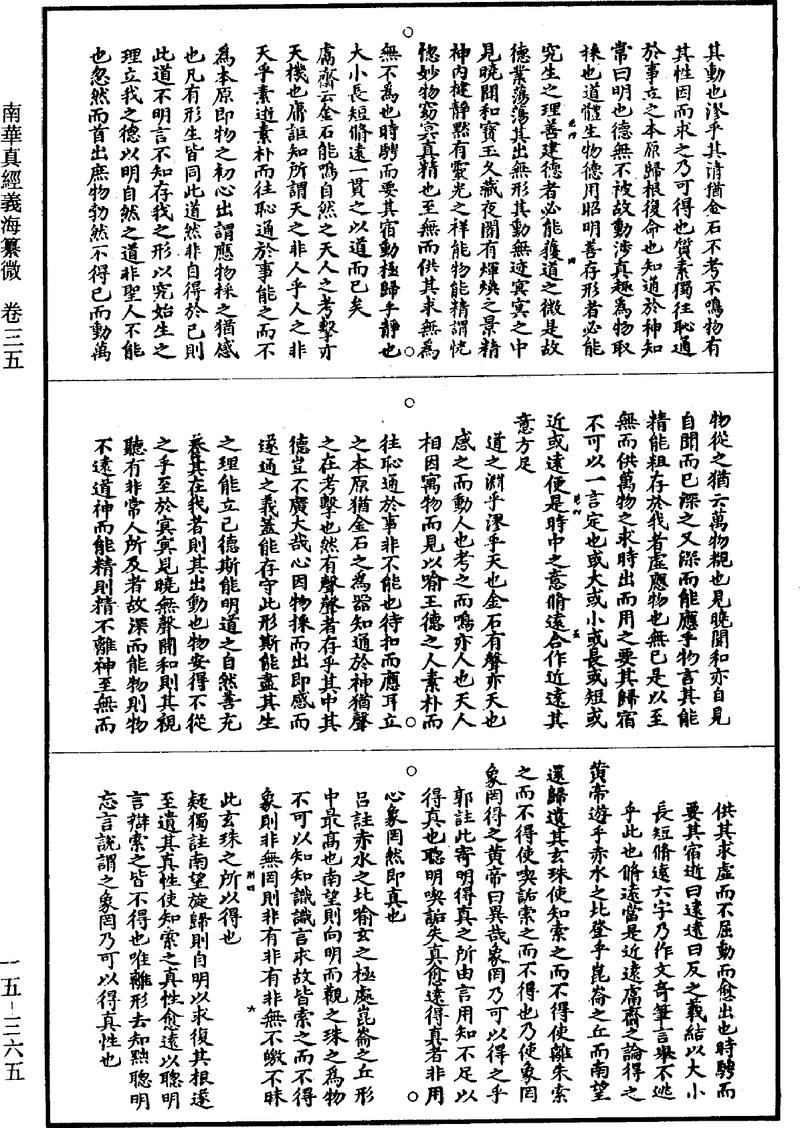 南華真經義海纂微　卷三五
一五－三六五
其動也漻乎其清猶金石不考不鳴物有
其性因而求之乃可得也質素獨往恥通
於事立之本原歸根復命也知道於神知
常曰明也德無不被故動涉真趣為物取
採也道體生物德用昭明善存形者必能
究生之理善建德者必能獲道之微是故
德業蕩蕩其出無形其動無迹冥冥之中
見曉聞和寶玉久藏夜闇有煇煥之景精
神内揵靜黙有靈光之祥能物能精謂恍
惚妙物窈冥真精也至無而供其求無為
無不為也時騁而要其宿動極歸乎靜也
大小長短脩遠一貫之以道而已矣
鬳齋云金石能鳴自然之天人之考擊亦
天機也庸詎知所謂天之非人乎人之非
天乎素逝素朴而往恥通於事能之而不
為本原即物之初心出謂應物採之猶感
也凡有形生皆同此道然非自得於己則
此道不明言不知存我之形以究始生之
理立我之德以明自然之道非聖人不能
也忽然而首出庶物勃然不得已而動萬
物從之猶云萬物覩也見曉聞和亦自見
自聞而已深之又深而能應乎物言其能
精能粗存於我者虛應物也無已是以至
無而供萬物之求時出而用之要其歸宿
不可以一言定也或大或小或長或短或
近或遠便是時中之意脩遠合作近遠其
意方足
道之淵乎漻乎天也金石有聲亦天也
感之而動人也考之而鳴亦人也天人
相因寓物而見以喻王德之人素朴而
往恥通於事非不能也待扣而應耳立
之本原猶金石之為器知通於神猶聲
之在考擊也然有聲聲者存乎其中其
德豈不廣大哉心因物採而出即感而
遂通之義蓋能存守此形斯能盡其生
之理能立己德斯能明道之自然善充
養其在我者則其出動也物安得不從
之乎至於冥冥見曉無聲聞和則其視
聽有非常人所及者故深而能物則物
不遠道神而能精則精不離神至無而
供其求虛而不屈動而愈出也時騁而
要其宿逝曰遠遠曰反之義結以大小
長短脩遠六字乃作文奇筆言舉不逃
乎此也脩遠當是近遠鬳齋之論得之
黃帝遊乎赤水之北登乎崑崙之丘而南望
還歸遺其玄珠使知索之而不得使離朱索
之而不得使喫詬索之而不得也乃使象罔
象罔得之黃帝曰異哉象罔乃可以得之乎
郭註此寄明得真之所由言用知不足以
得真也聰明喫詬失真愈遠得真者非用
心象罔然即真也
呂註赤水之北喻玄之極處崑崙之丘形
中最高也南望則向明而觀之珠之為物
不可以知知識識言求故皆索之而不得
象則非無罔則非有非有非無不皦不昧
此玄珠之所以得也
疑獨註南望旋歸則自明以求復其根遂
至遺其真性使知索之真性愈遠以聰明
言辯索之皆不得也唯離形去知黜聰明
忘言說謂之象罔乃可以得真性也